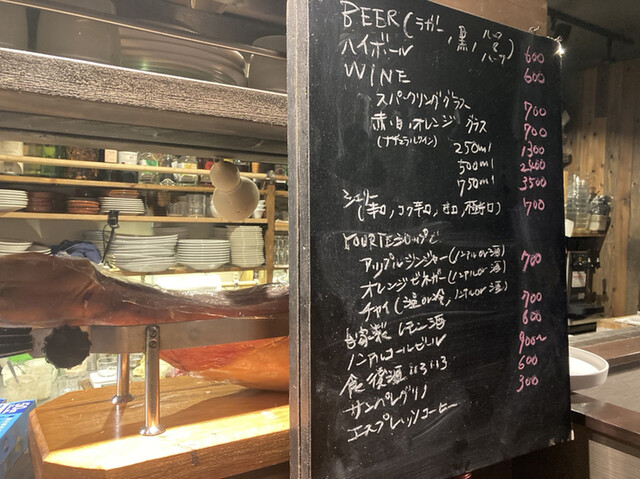 BEER (ラガー, 黒, ハーフ&ハーフ) 600
ハイボール 600
WINE
スパークリンググラス 700
赤,白,オレンジ グラス 700
(ナチュラルワイン) 250ml 1300
500ml 2400
750ml 3500
シェリー (辛口, コク辛口, 甘口, 極甘口) 700
YOURTEシロップで
アップルジンジャー (ノンアル or 酒) 700
オレンジビネガー (ノンアル or 酒)
チャイ (温 or 冷, ノンアル or 酒)
自家製 レモン酒 700
ノンアルコールビール 600
食後酒 いろいろ 900〜
サンペレグリノ 600
エスプレッソコーヒー 300